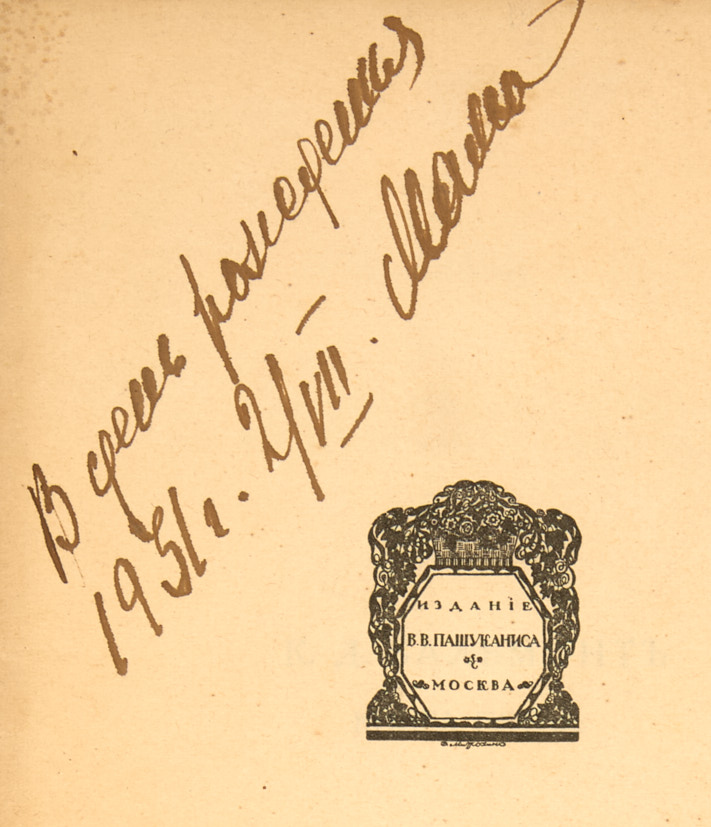 В день рождения
1951 г. 2/VII. Мама
ИЗДАНІЕ
В.В.ПАШУКАНИСА
МОСКВА